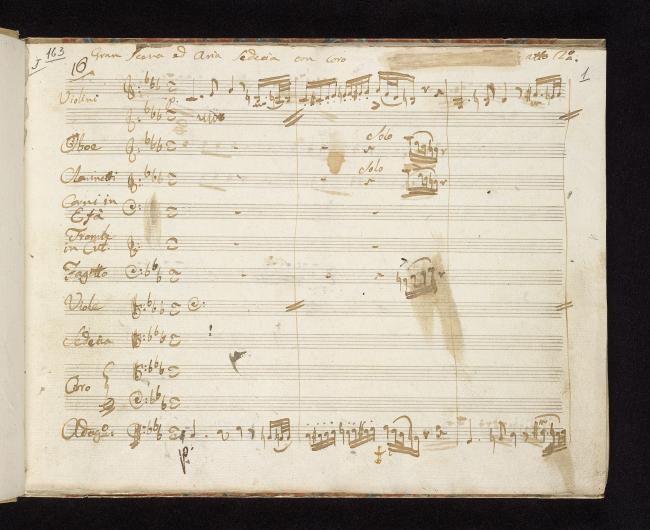 163
10
Gran Scena ed Aria Sedecia con Coro
atto 2º.
1
Violini
Oboe
Solo
Clarinetti
Solo
Corni in
Efà
Trombe
in
Fagotto
Viole
Sedecia
Coro
Adagº:
p: